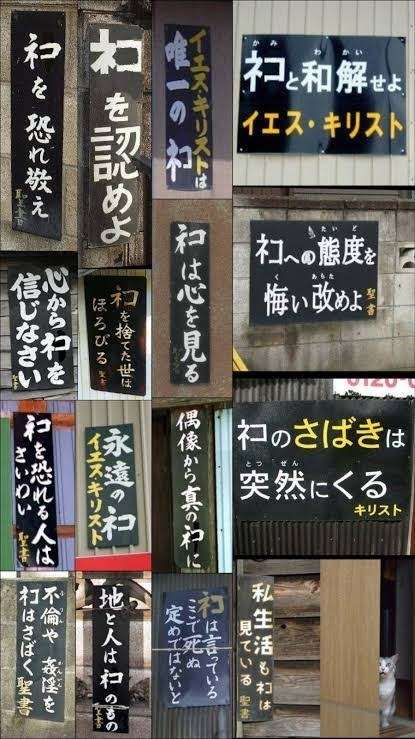 ネコを恐れ敬え
聖書
ネコを認めよ
イエス・キリストは
唯一のネコ
かみ わかい
ネコと和解せよ
イエス・キリスト
心からネコを
信じなさい
聖書
ネコを捨てた世は
ほろびる
聖書
ネコは心を見る
たいど
ネコへの態度を
く あらた
悔い改めよ
聖書
ネコを恐れる人は
さいわい
聖書
永遠のネコ
イエスキリスト
偶像から真のネコに
0120-0
ネコのさばきは
とつ ぜん
突然にくる
キリスト
不倫や姦淫を
ネコはさばく
聖書
地と人はネコのもの
聖書
ネコは言っている
ここで死ぬ
定めではないと
私生活もネコは
見ている
聖書